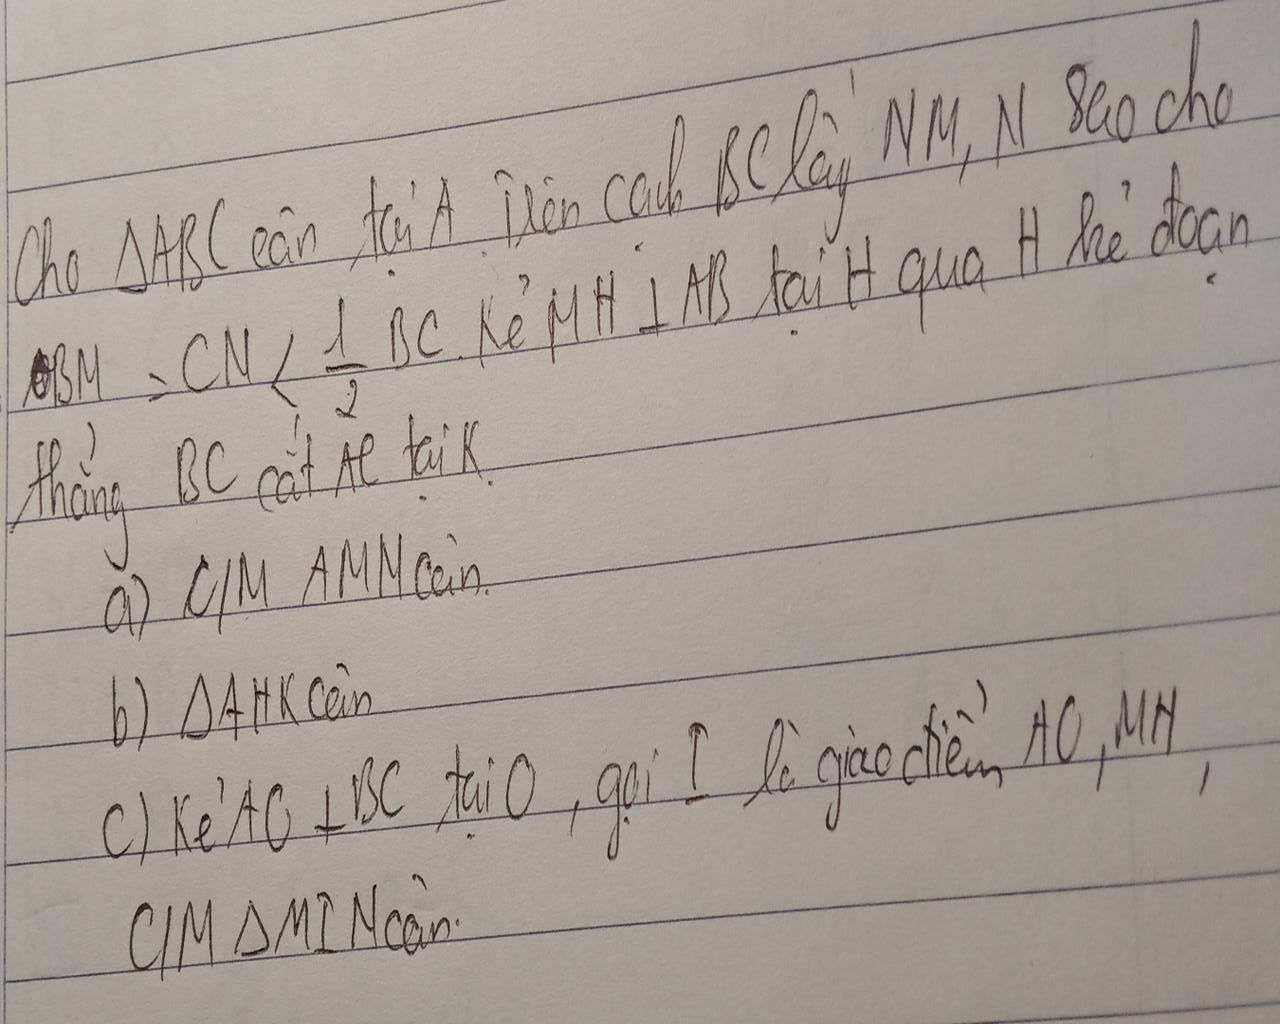 Cho ΔABC cân tại A Trên cạnh BC lấy NM, N sao cho
BM = CN < 1/2 BC. Kẻ MH ⊥ AB tại H qua H kẻ đoạn
thẳng BC cắt AC tại K.
a) C/M AMN cân.
b) ΔAHK cân
c) Kẻ AO ⊥ BC tại O, gọi I là giao điểm AO, MH,
C/M ΔMIN cân.